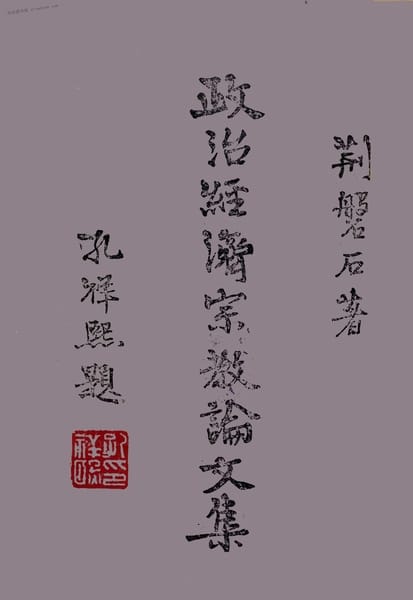 荆磐石著
政治經濟宗教論文集
孔祥熙題